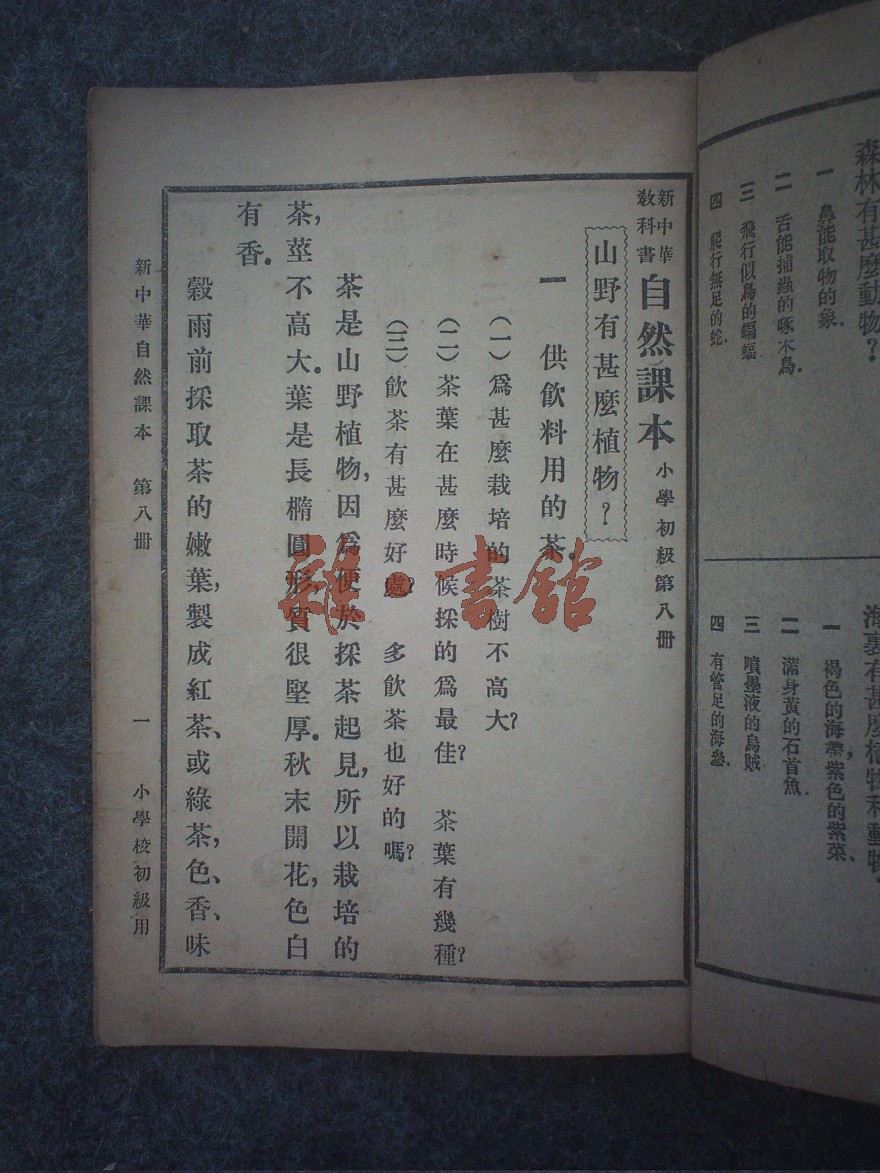 森林有甚麼動物？
一　鼻能取物的象.
二　舌能捕蟲的啄木鳥.
三　飛行似鳥的蝙蝠
四　爬行無足的蛇.
海裏有甚麼植物和動物？
一　褐色的海帶,紫色的紫菜.
二　滿身黃的石首魚.
三　噴墨液的烏賊
四　有管足的海參.
新中華
教科書
自然課本　小學初級第八册
山野有甚麼植物？
一　供飲料用的茶.
(一)爲甚麼栽培的茶樹不高大？
(二)茶葉在甚麼時候採的爲最佳？　茶葉有幾種？
(三)飲茶有甚麼好處？　多飲茶也好的嗎？
茶是山野植物,因爲便於採茶起見,所以栽培的
茶,莖不高大.葉是長橢圓形,質很堅厚.秋末開花,色白
有香.
穀雨前採取茶的嫩葉,製成紅茶、或綠茶,色、香、味
新中華自然課本　第八册　一　小學校初級用
雜·書館